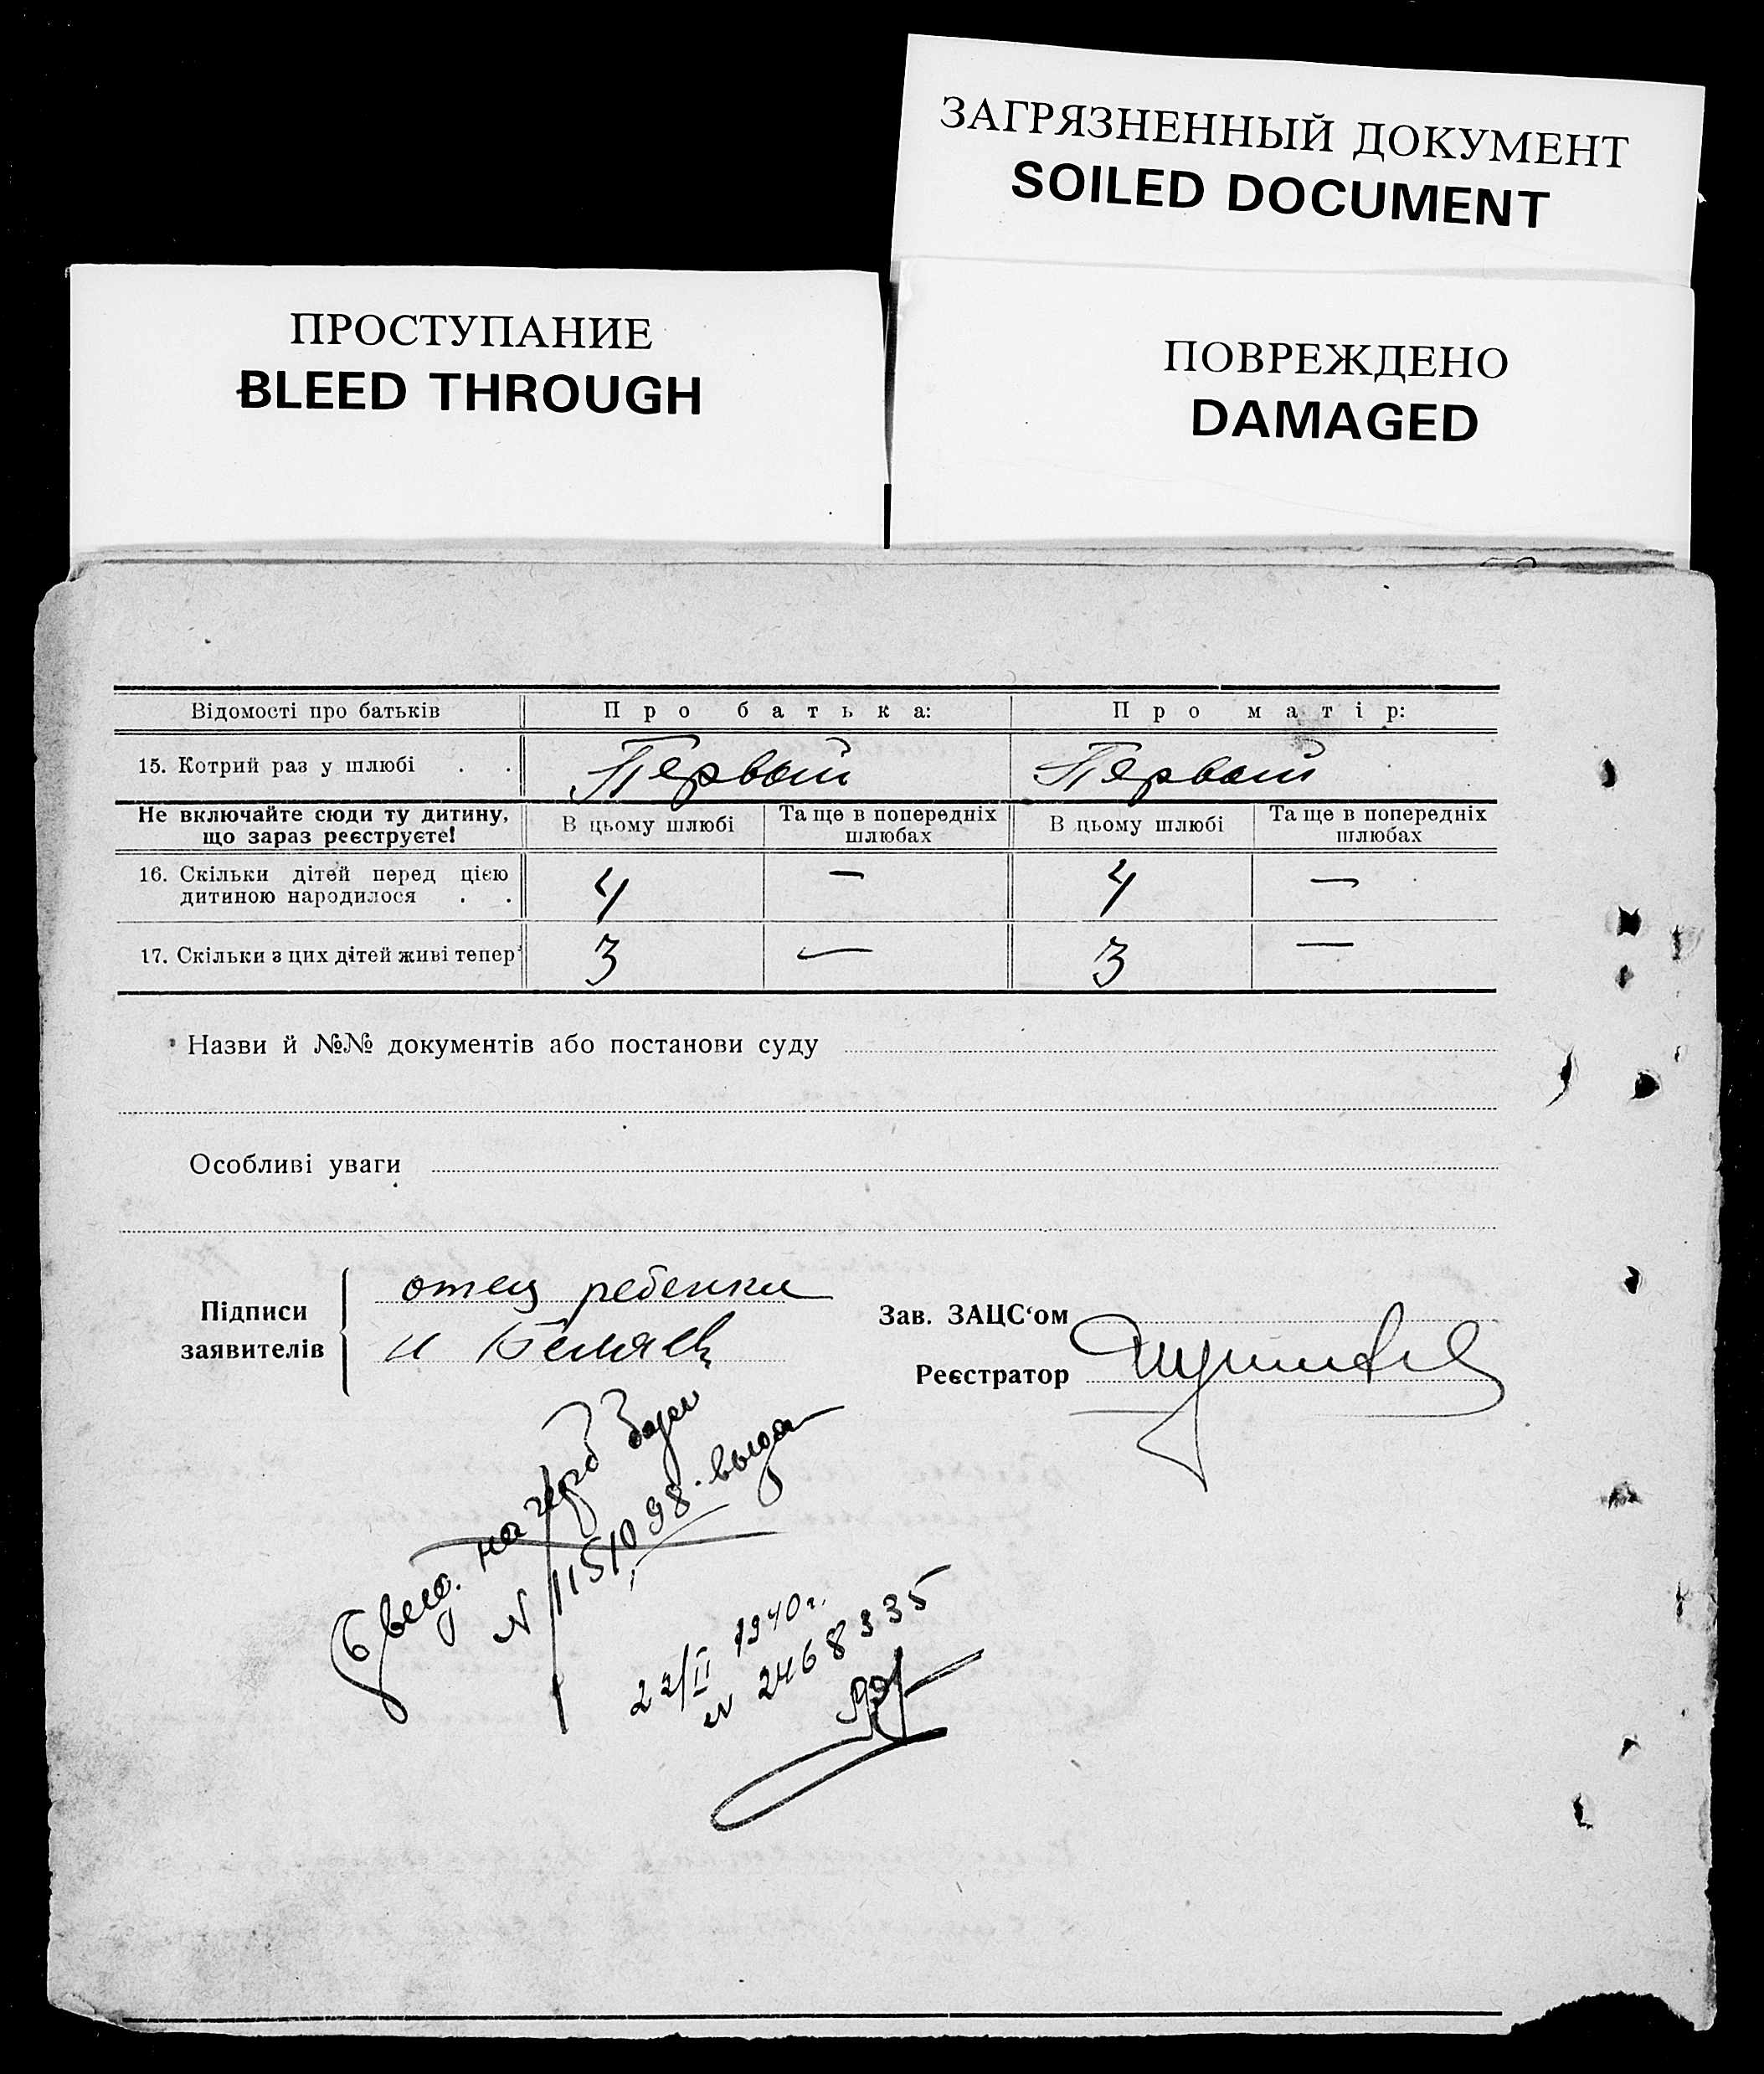 ЗАГРЯЗНЕННЫЙ ДОКУМЕНТ
SOILED DOCUMENT
ПРОСТУПАНИЕ
BLEED THROUGH
ПОВРЕЖДЕНО
DAMAGED
Відомості про батьків Про батька: Про матір:
15. Котрий раз у шлюбі . . Первый Первый
Не включайте сюди ту дитину,
що зараз реєструєте!
В цьому шлюбі
Та ще в попередніх
шлюбах
В цьому шлюбі
Та ще в попередніх
шлюбах
16. Скільки дітей перед цією
дитиною народилося . . 4 — 4 —
17. Скільки з цих дітей живі тепер 3 — 3 —
Назви й №№ документів або постанови суду
Особливі уваги
Підписи
заявителів
отец ребенка
и
Зав. ЗАЦС‘ом
Реєстратор
N 1151098
22/II 1940г.
N 2468335